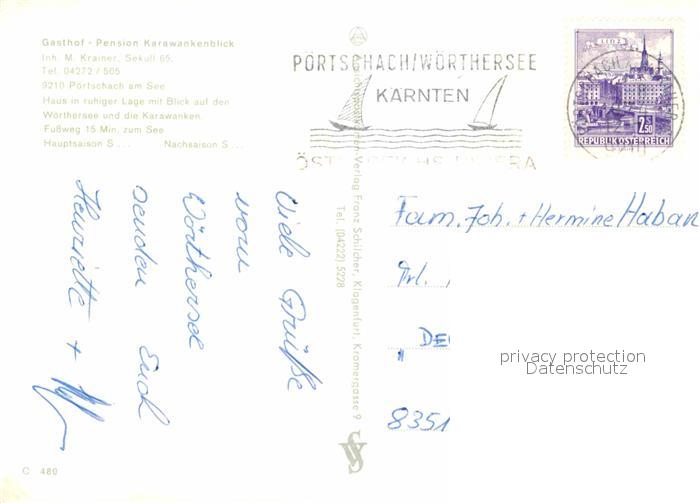 Gasthof - Pension Karawankenblick
Inh. M. Krainer, Sekull 65,
Tel. 04272 / 505
9210 Pörtschach am See
Haus in ruhiger Lage mit Blick auf den
Wörthersee und die Karawanken.
Fußweg 15 Min. zum See
Hauptsaison S ... Nachsaison S ...
PÖRTSCHACH/WÖRTHERSEE
KÄRNTEN
ÖSTERREICHS RIVIERA
LINZ
2.50
REPUBLIK ÖSTERREICH
Viele Grüße
vom
Wörthersee
senden Euch
Henriette +
Verlag Franz Schilcher, Klagenfurt, Kromergasse 9
Tel. (04222) 5228
Fam. Joh. + Hermine Haban
8351
privacy protection
Datenschutz
C 480